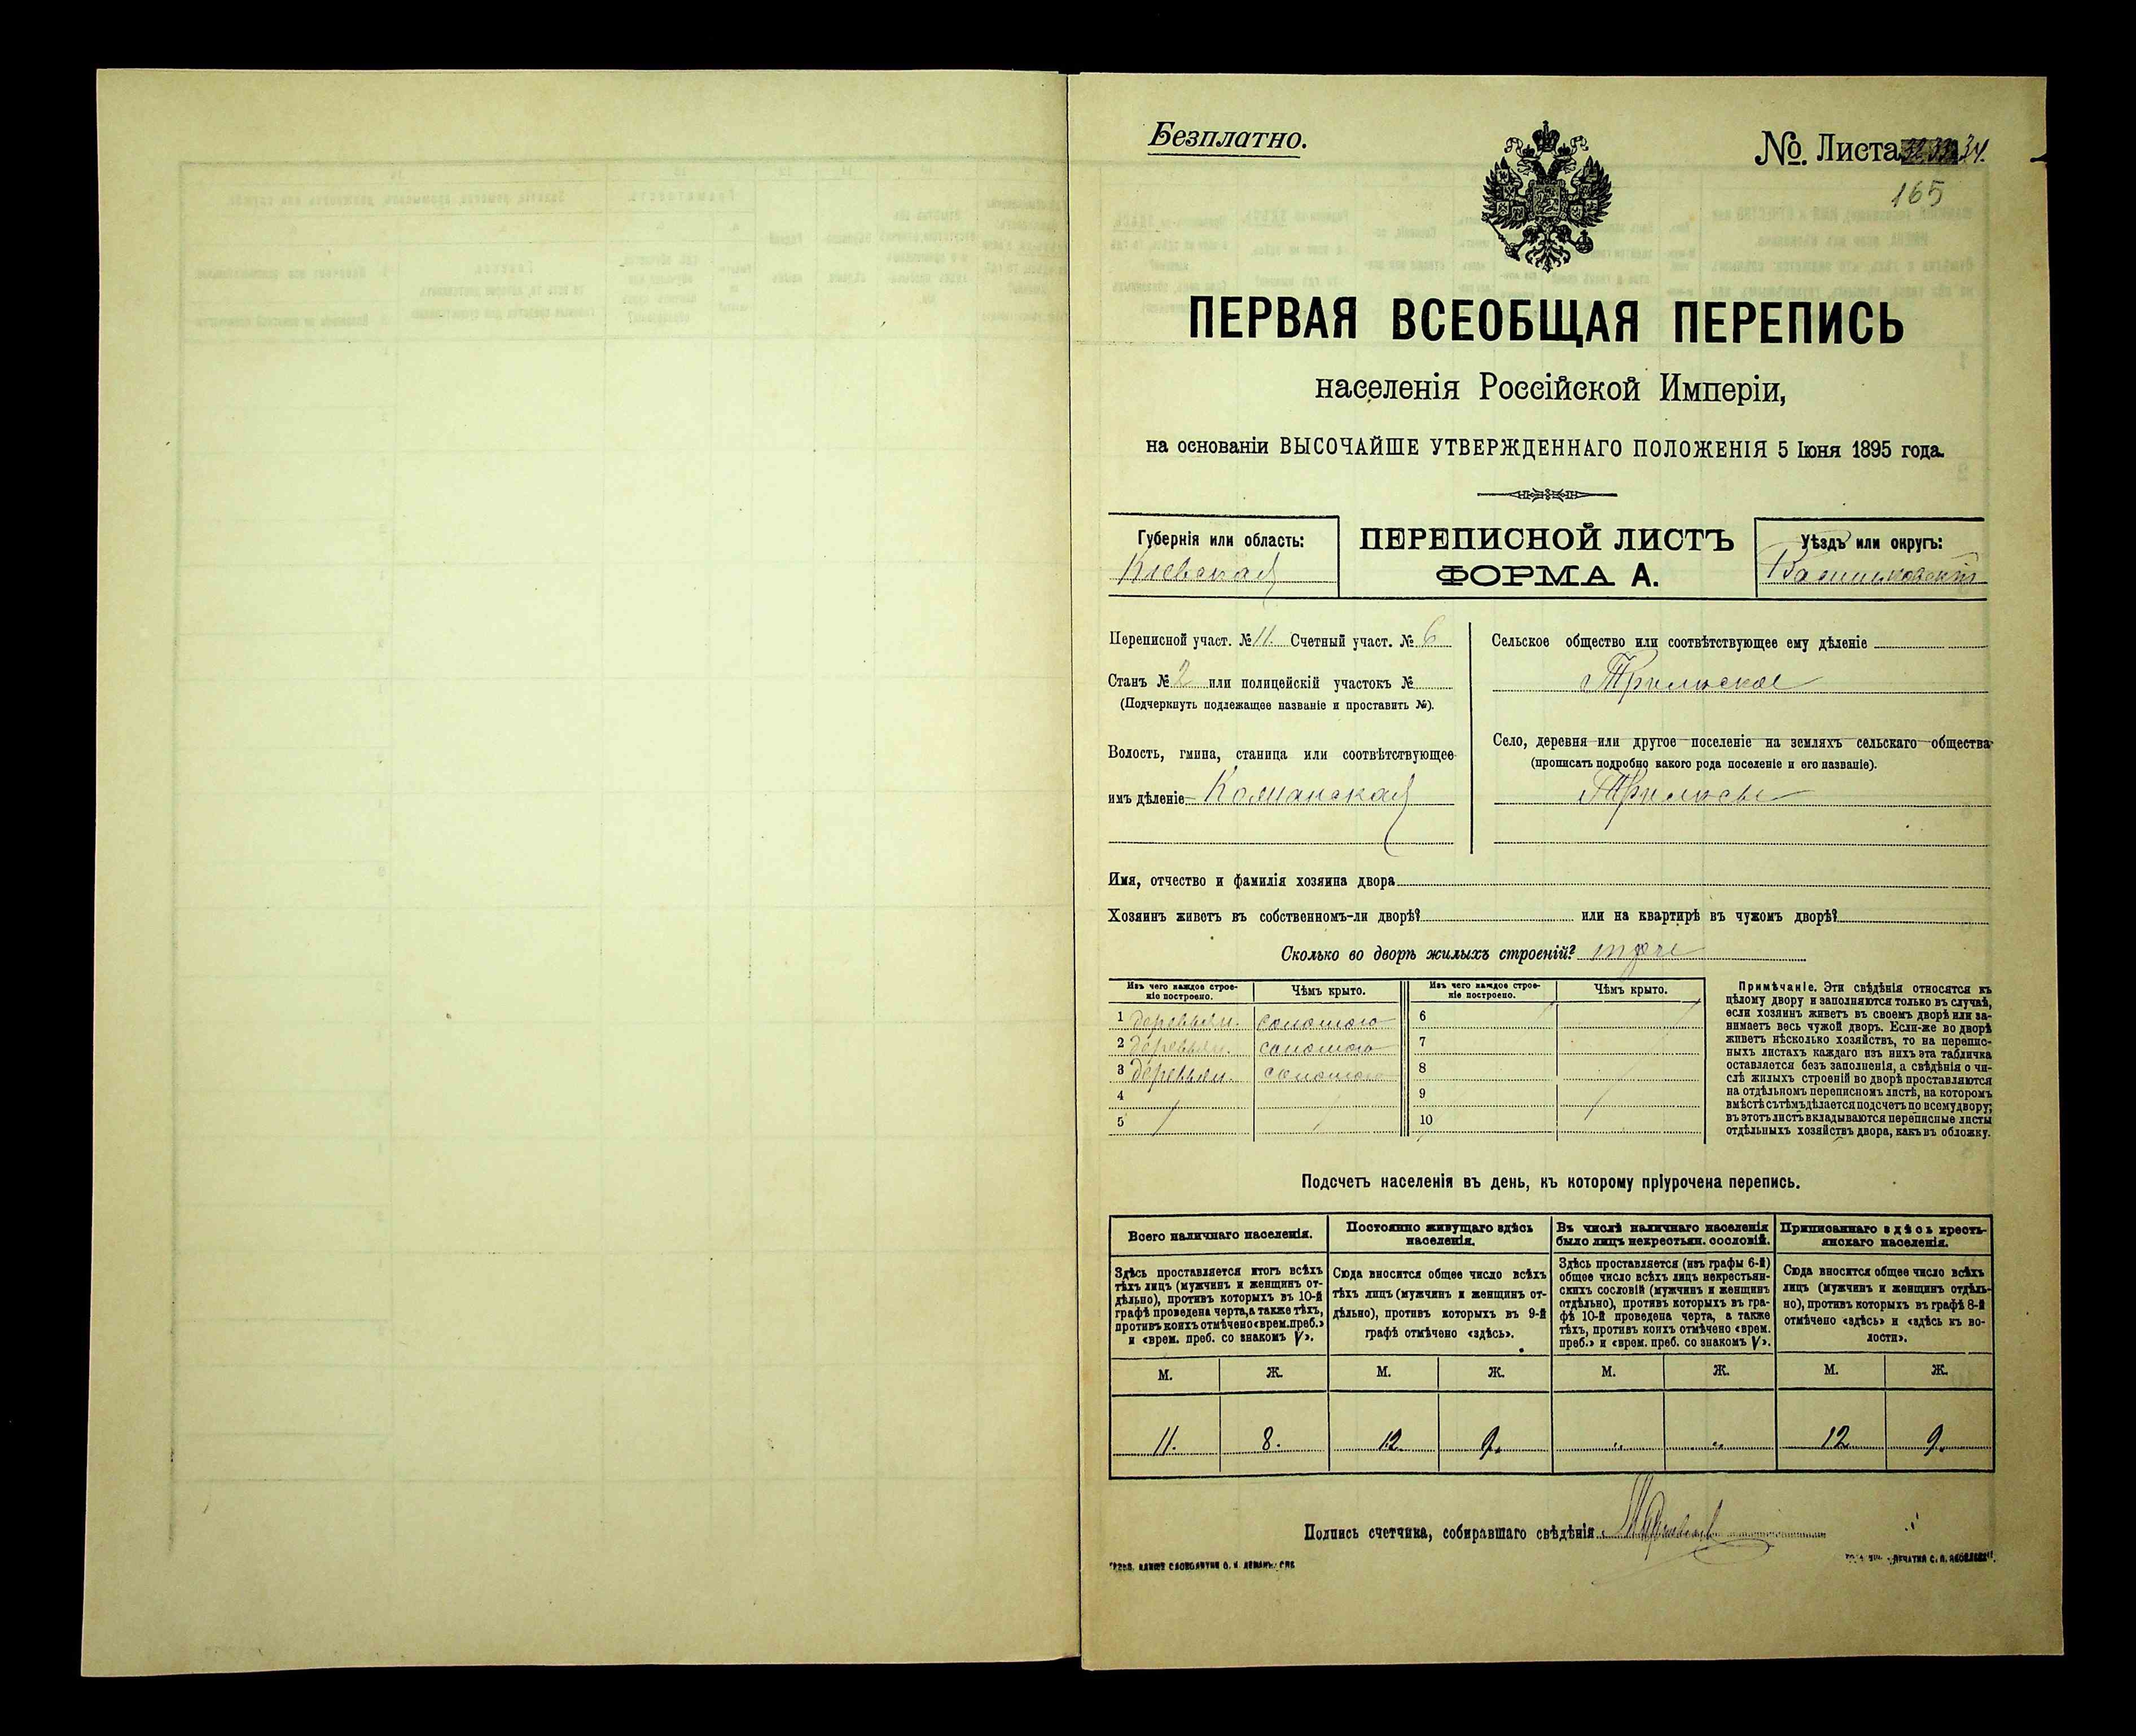 Безплатно.
№. Листа 34.
165
ПЕРВАЯ ВСЕОБЩАЯ ПЕРЕПИСЬ
населенія Россійской Имперіи,
на основаніи ВЫСОЧАЙШЕ УТВЕРЖДЕННАГО ПОЛОЖЕНІЯ 5 Іюня 1895 года.
Губернія или область:
Кіевская
ПЕРЕПИСНОЙ ЛИСТЪ
ФОРМА А.
Уѣздъ или округъ:
Васильковскій
Переписной участ. № 11. Счетный участ. № 6
Станъ № 2 или полицейскій участокъ №
(Подчеркнуть подлежащее названіе и проставить №).
Волость, гмина, станица или соотвѣтствующее
имъ дѣленіе
Сельское общество или соотвѣтствующее ему дѣленіе
Трилѣское
Село, деревня или другое поселеніе на земляхъ сельскаго общества
(прописать подробно какого рода поселеніе и его названіе).
Трилѣсы
Имя, отчество и фамилія хозяина двора
Хозяинъ живетъ въ собственномъ-ли дворѣ? или на квартирѣ въ чужомъ дворѣ?
Сколько во дворѣ жилыхъ строеній? трое
Изъ чего каждое строе-
ніе построено.
Чѣмъ крыто.
Изъ чего каждое строе-
ніе построено.
Чѣмъ крыто.
1 деревян. соломою 6
2 деревян. соломою 7
3 деревян. соломою 8
4 9
5 10
Примѣчаніе. Эти свѣдѣнія относятся къ
цѣлому двору и заполняются только въ случаѣ,
если хозяинъ живетъ въ своемъ дворѣ или за-
нимаетъ весь чужой дворъ. Если-же во дворѣ
живетъ нѣсколько хозяйствъ, то на перепис-
ныхъ листахъ каждаго изъ нихъ эта табличка
оставляется безъ заполненія, а свѣдѣнія о чи-
слѣ жилыхъ строеній во дворѣ проставляются
на отдѣльномъ переписномъ листѣ, на которомъ
вмѣстѣ съ тѣмъ дѣлается подсчетъ по всему двору;
въ этотъ листъ вкладываются переписные листы
отдѣльныхъ хозяйствъ двора, какъ въ обложку.
Подсчетъ населенія въ день, къ которому пріурочена перепись.
Всего наличнаго населенія.
Здѣсь проставляется итогъ всѣхъ
тѣхъ лицъ (мужчинъ и женщинъ от-
дѣльно), противъ которыхъ въ 10-й
графѣ проведена черта, а также тѣхъ,
противъ коихъ отмѣчено «врем. преб.»
и «врем. преб. со знакомъ V».
Постоянно живущаго здѣсь
населенія.
Сюда вносится общее число всѣхъ
тѣхъ лицъ (мужчинъ и женщинъ от-
дѣльно), противъ которыхъ въ 9-й
графѣ отмѣчено «здѣсь».
Въ числѣ наличнаго населенія
было лицъ некрестьян. сословій.
Здѣсь проставляется (изъ графы 6-й)
общее число всѣхъ лицъ некрестьян-
скихъ сословій (мужчинъ и женщинъ
отдѣльно), противъ которыхъ въ гра-
фѣ 10-й проведена черта, а также
тѣхъ, противъ коихъ отмѣчено «врем.
преб.» и «врем. преб. со знакомъ V».
Приписаннаго здѣсь кресть-
янскаго населенія.
Сюда вносится общее число всѣхъ
лицъ (мужчинъ и женщинъ отдѣль-
но), противъ которыхъ въ графѣ 8-й
отмѣчено «здѣсь» и «здѣсь къ во-
лости».
М. Ж. М. Ж. М. Ж. М. Ж.
11. 8. 12 9. „ „ 12 9.
Подпись счетчика, собиравшаго свѣдѣнія